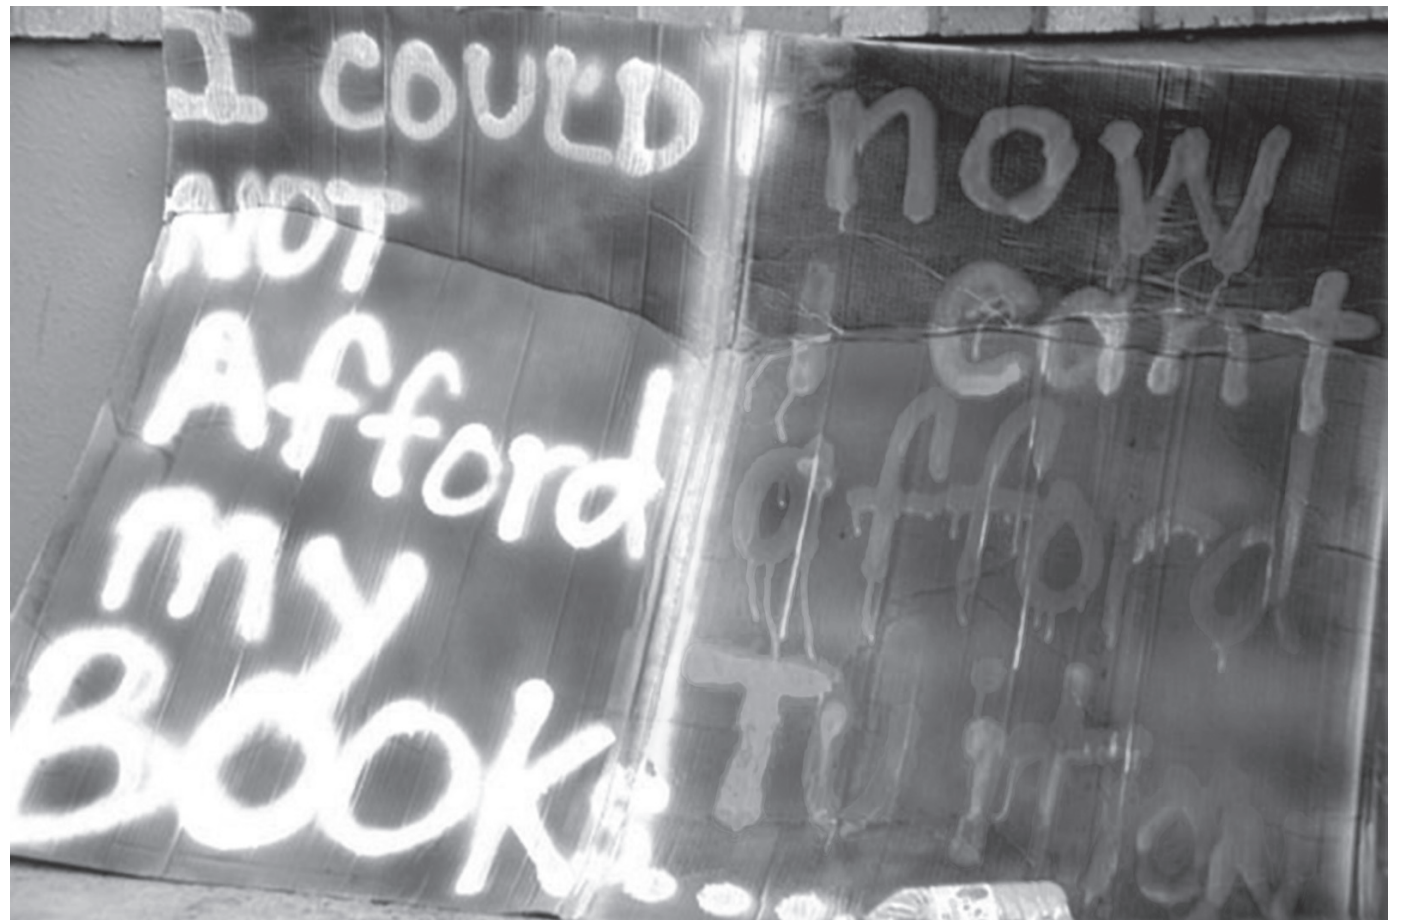 I COULD
NOT
Afford
my
BOOKs...
now
i Cant
afford
TUitiON